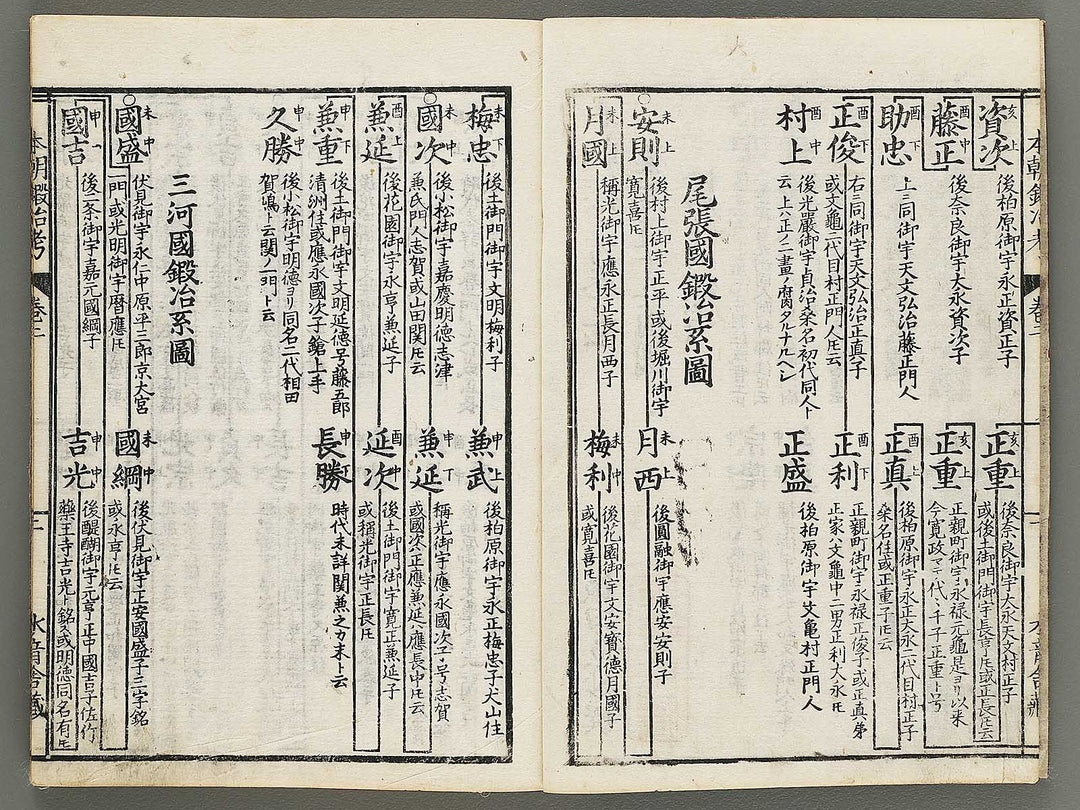 本朝鍛冶考
卷二
資次
亥上
後柏原御宇永正資正子
正重
亥上
後奈良御宇大永天文村正子
或後土御門御宇長亨𪜈或正長𪜈云
藤正
酉下
後奈良御宇大永資次子
正重
亥上
正親町御宇永禄元龜是ヨリ以来
今寛政マテ代々千子正重ト号
助忠
酉下
上ニ同御宇天文弘治藤正門人
正真
酉上
後柏原御宇永正大永二代目村正子
桑名住或正重子𪜈云
正俊
酉下
右ニ同御宇天文弘治正真子
或文龜二代目村正門人𪜈云
正利
酉下
正親町御宇永禄正俊子或正真弟
正家公文龜中二男正利大永𪜈
村上
酉中
後光嚴御宇貞治桑名初代同人ト
云上六正ノ二畫ノ腐タルナルヘシ
正盛
後柏原御宇文亀村正門人
尾張國鍛冶系圖
安則
未上
後村上御宇正平或後堀川御宇
寛喜𪜈
月西
未上
後圓融御宇應安安則子
月國
未上
稱光御宇應永正長月西子
梅利
未中
後花園御宇文安寳德月國子
或寛喜𪜈
梅忠
未上
後土御門御宇文明梅利子
兼武
申上
後柏原御宇永正梅忠子犬山住
國次
未中
後小松御宇嘉慶明德志津
兼氏門人志賀或山田関𪜈云
兼延
未下
稱光御宇應永國次子号志賀
或國次正應兼延應長中𪜈云
兼延
酉上
後花園御宇永亨兼延子
延次
酉中
後土御門御宇寛正兼延子
或稱光御宇正長𪜈
兼重
申下
後土御門御宇文明延德号藤五郎
清洲住或應永國次子鎗上手
長勝
申下
時代未詳関兼之カ末ト云
久勝
申中
後小松御宇明德ヨリ同名二代相田
賀嶋ト云関ノ一門ト云
三河國鍛冶系圖
國盛
未中
伏見御宇永仁中原平三郎京大宮
一門或光明御宇暦應𪜈
國綱
未中
後伏見御宇正安國盛子三字銘
或永亨𪜈云
國吉
申
後二条御宇嘉元國綱子
吉光
申中
後醍醐御宇元亨正中國吉子佐竹
藥王寺吉光ト銘ス或明德同名有𪜈
本朝鍛冶考
卷二
二
水音舎藏